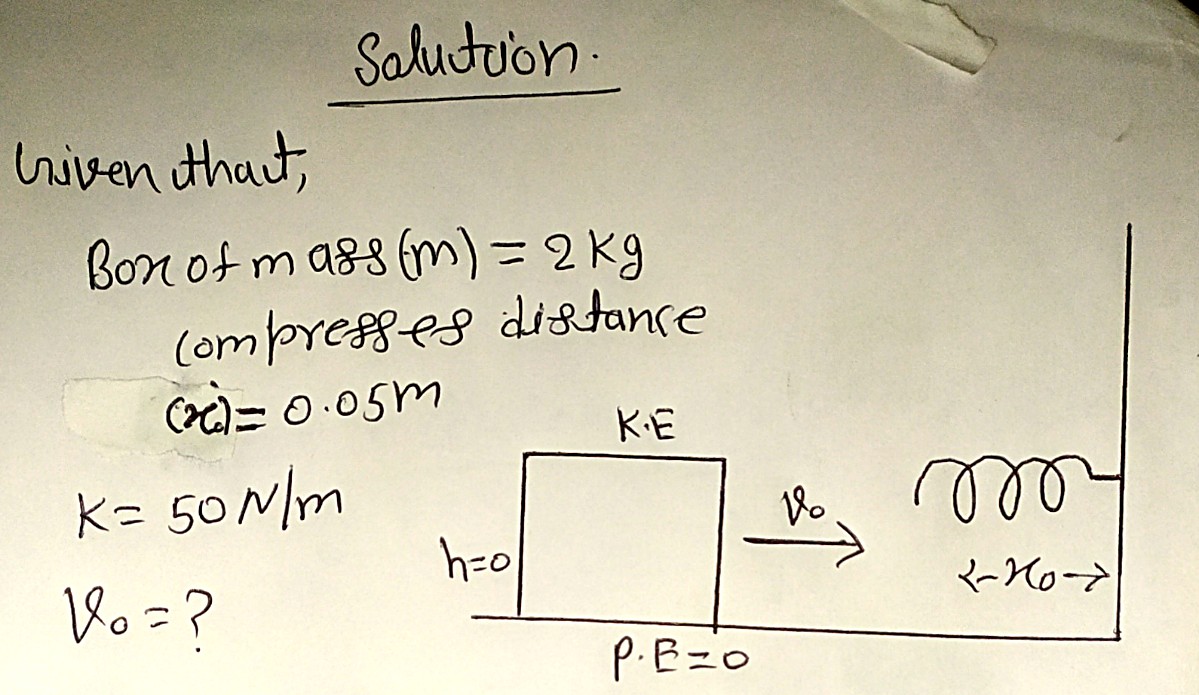 Solution.
Given that,
Box of mass (m) = 2 kg
compresses distance
(x) = 0.05m
K = 50 N/m
K.E
v₀
h=0
<-x₀->
v₀ = ?
P.E=0